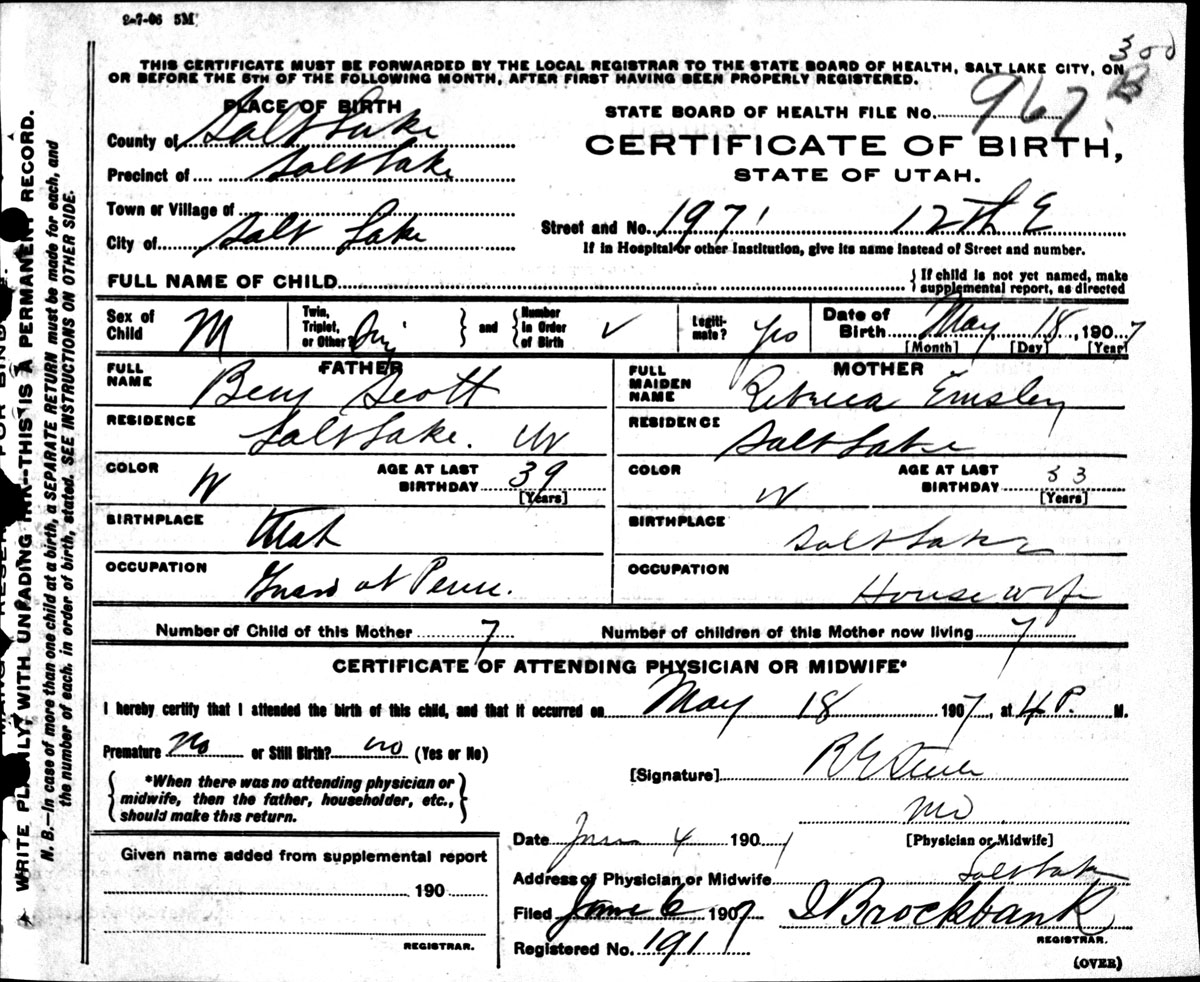 2-7-06 5M
300
B
THIS CERTIFICATE MUST BE FORWARDED BY THE LOCAL REGISTRAR TO THE STATE BOARD OF HEALTH, SALT LAKE CITY, ON
OR BEFORE THE 5TH OF THE FOLLOWING MONTH, AFTER FIRST HAVING BEEN PROPERLY REGISTERED.
PLACE OF BIRTH
STATE BOARD OF HEALTH FILE No. 967
County of Salt Lake
CERTIFICATE OF BIRTH,
Precinct of Salt Lake
STATE OF UTAH.
Town or Village of
Street and No. 1971 12th E
City of Salt Lake
If in Hospital or other Institution, give its name instead of Street and number.
FULL NAME OF CHILD
If child is not yet named, make
supplemental report, as directed
Sex of Child M
Twin, Triplet, or Other?
and Number in Order of Birth ✓
Legiti-mate? Yes
Date of Birth May, 18, 1907
[Month] [Day] [Year]
FATHER
FULL NAME Benj Scott
RESIDENCE Salt Lake.
COLOR W
AGE AT LAST BIRTHDAY 39
[Years]
BIRTHPLACE Utah
OCCUPATION Guard at Penn.
MOTHER
FULL MAIDEN NAME Rebecca Emsley
RESIDENCE Salt Lake
COLOR W
AGE AT LAST BIRTHDAY 33
[Years]
BIRTHPLACE Salt Lake
OCCUPATION House wife
Number of Child of this Mother 7
Number of children of this Mother now living 7
CERTIFICATE OF ATTENDING PHYSICIAN OR MIDWIFE*
I hereby certify that I attended the birth of this child, and that it occurred on May 18 1907, at 4 P. M.
Premature no or Still Birth? no (Yes or No)
[Signature]
*When there was no attending physician or
midwife, then the father, householder, etc.,
should make this return.
MD
[Physician or Midwife]
Date June 4 1907
Address of Physician or Midwife Salt Lake
Filed June 6 1907
Brockbank
REGISTRAR.
Registered No. 191
(OVER)
Given name added from supplemental report
190
REGISTRAR.
WRITE PLAINLY WITH UNFADING INK—THIS IS A PERMANENT RECORD.
N. B.—In case of more than one child at a birth, a SEPARATE RETURN must be made for each, and
the number of each, in order of birth, stated. SEE INSTRUCTIONS ON OTHER SIDE.